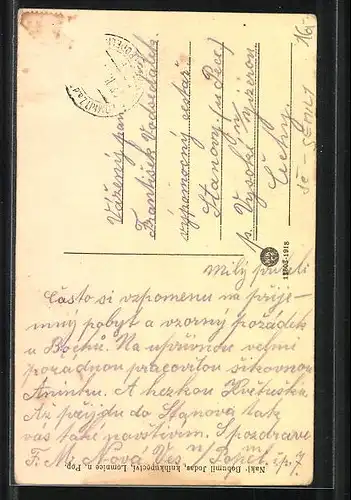 Vážený pan
František Vodseďálek
výpomocný cestář
Stanovy (u Pece)
p. Vysoké n/ Jizerou
Čechy
11802-1918
Milý
často si vzpomenu na příje-
mný pobyt a vzorný pořádek
u Bochů. Na upřímnou velmi
pořádnou pracovitou šikovnou
Aninku. A hezkou Květušku
Až přijdu do Stanová tak
vás také navštívím. S pozdravem
F. M. Nová Ves n/ Popel. čp. 7
Nakl. Bohumil Jodas, knihkupectví, Lomnice n. Pop.